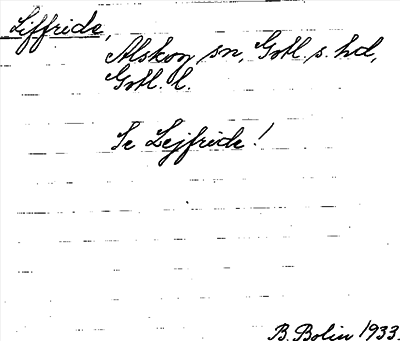 Liffride,
Alskog sn, Gotl. s. hd,
Gotl. l.
Se Lejfride!
B. Bolin 1933.